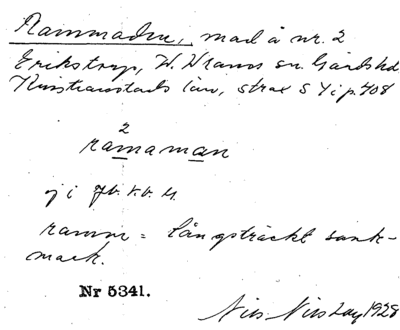 Rammaden, mad å nr. 2
Erikstorp, W. Wrams sn. Gärds hd.
Kristianstads län, strax S 4 i p. 408
2
ramaman
ej i Jb. v. b. U.
ramm = långsträckt sank-
mark.
Nr 5341.
Nils Nilsson 1928